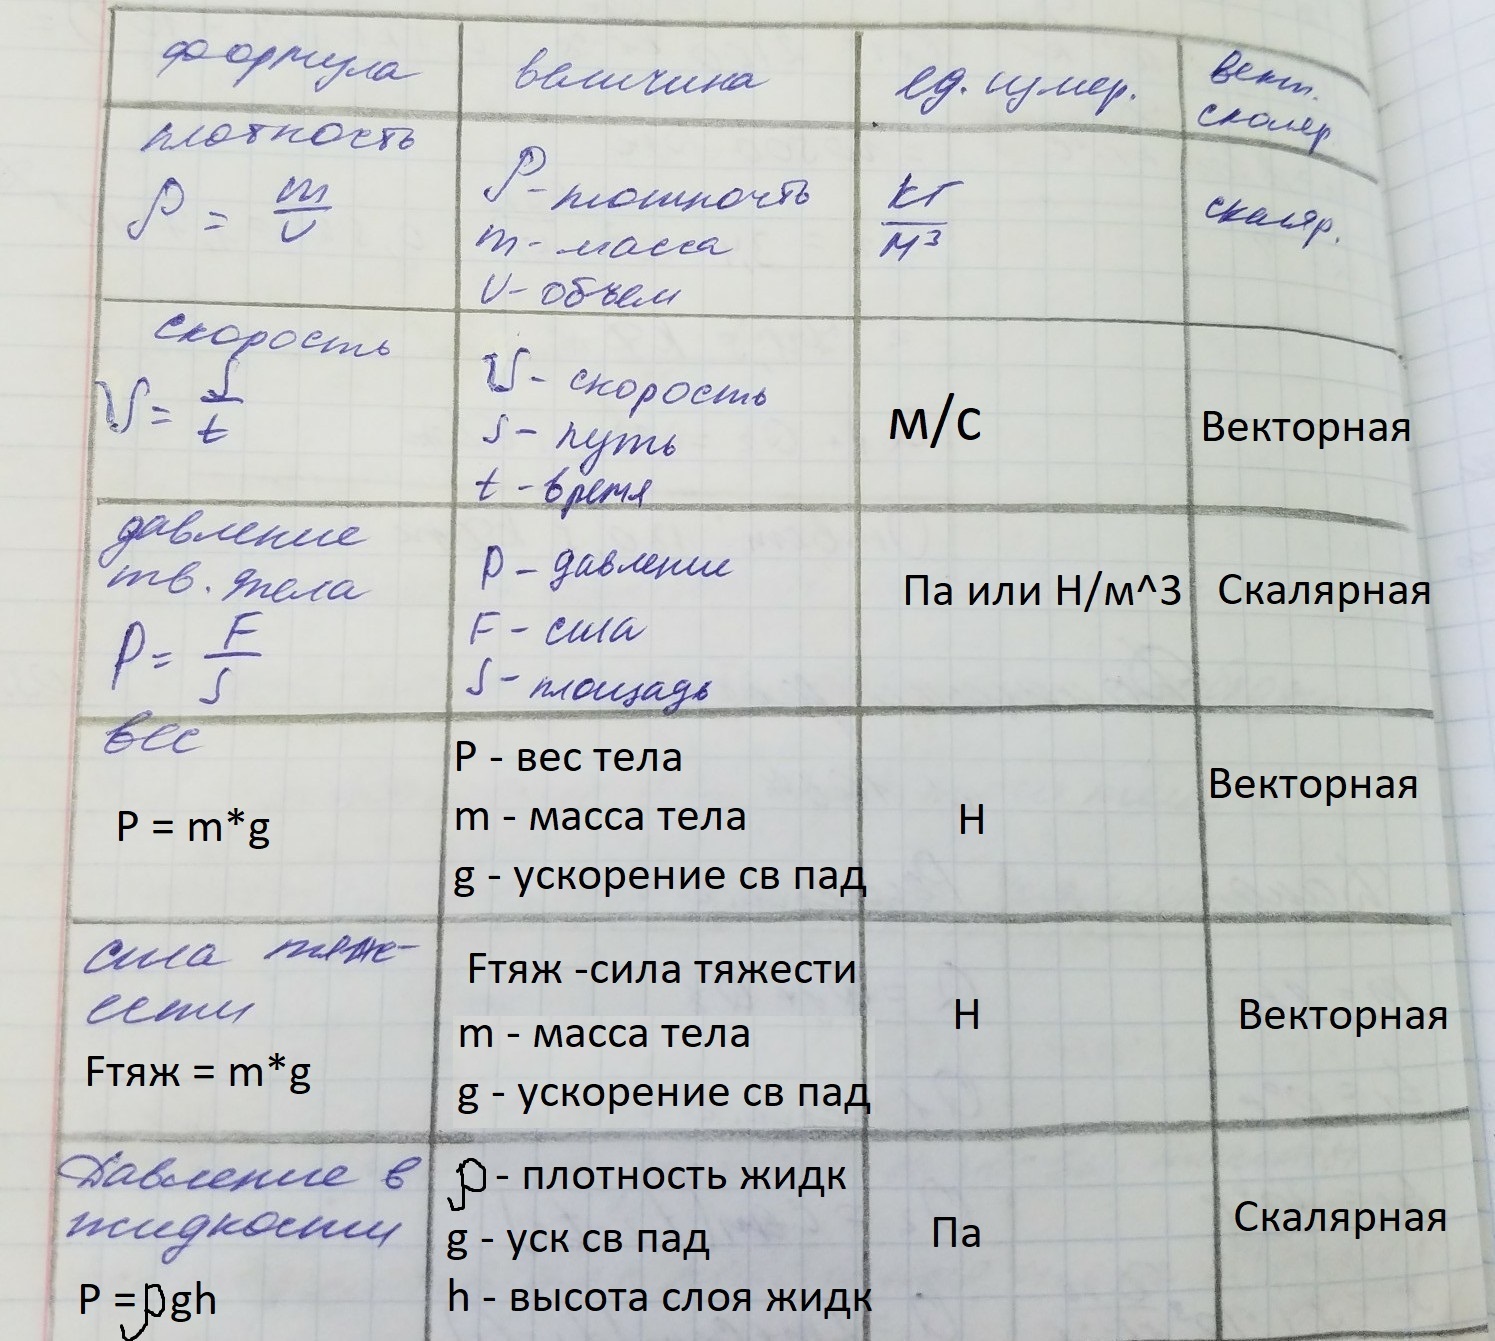 формула
величина
ед. измер.
вект.
скаляр
плотность
ρ = m/v
ρ - плотность
m - масса
v - объем
кг/м³
скаляр.
скорость
v = s/t
v - скорость
s - путь
t - время
м/с
Векторная
давление
тв. тела
p = F/s
p - давление
F - сила
s - площадь
Па или Н/м^3
Скалярная
вес
P = m*g
P - вес тела
m - масса тела
g - ускорение св пад
Н
Векторная
сила тяж-
ести
Fтяж = m*g
Fтяж -сила тяжести
m - масса тела
g - ускорение св пад
Н
Векторная
Давление в
жидкости
P =ρgh
ρ - плотность жидк
g - уск св пад
h - высота слоя жидк
Па
Скалярная